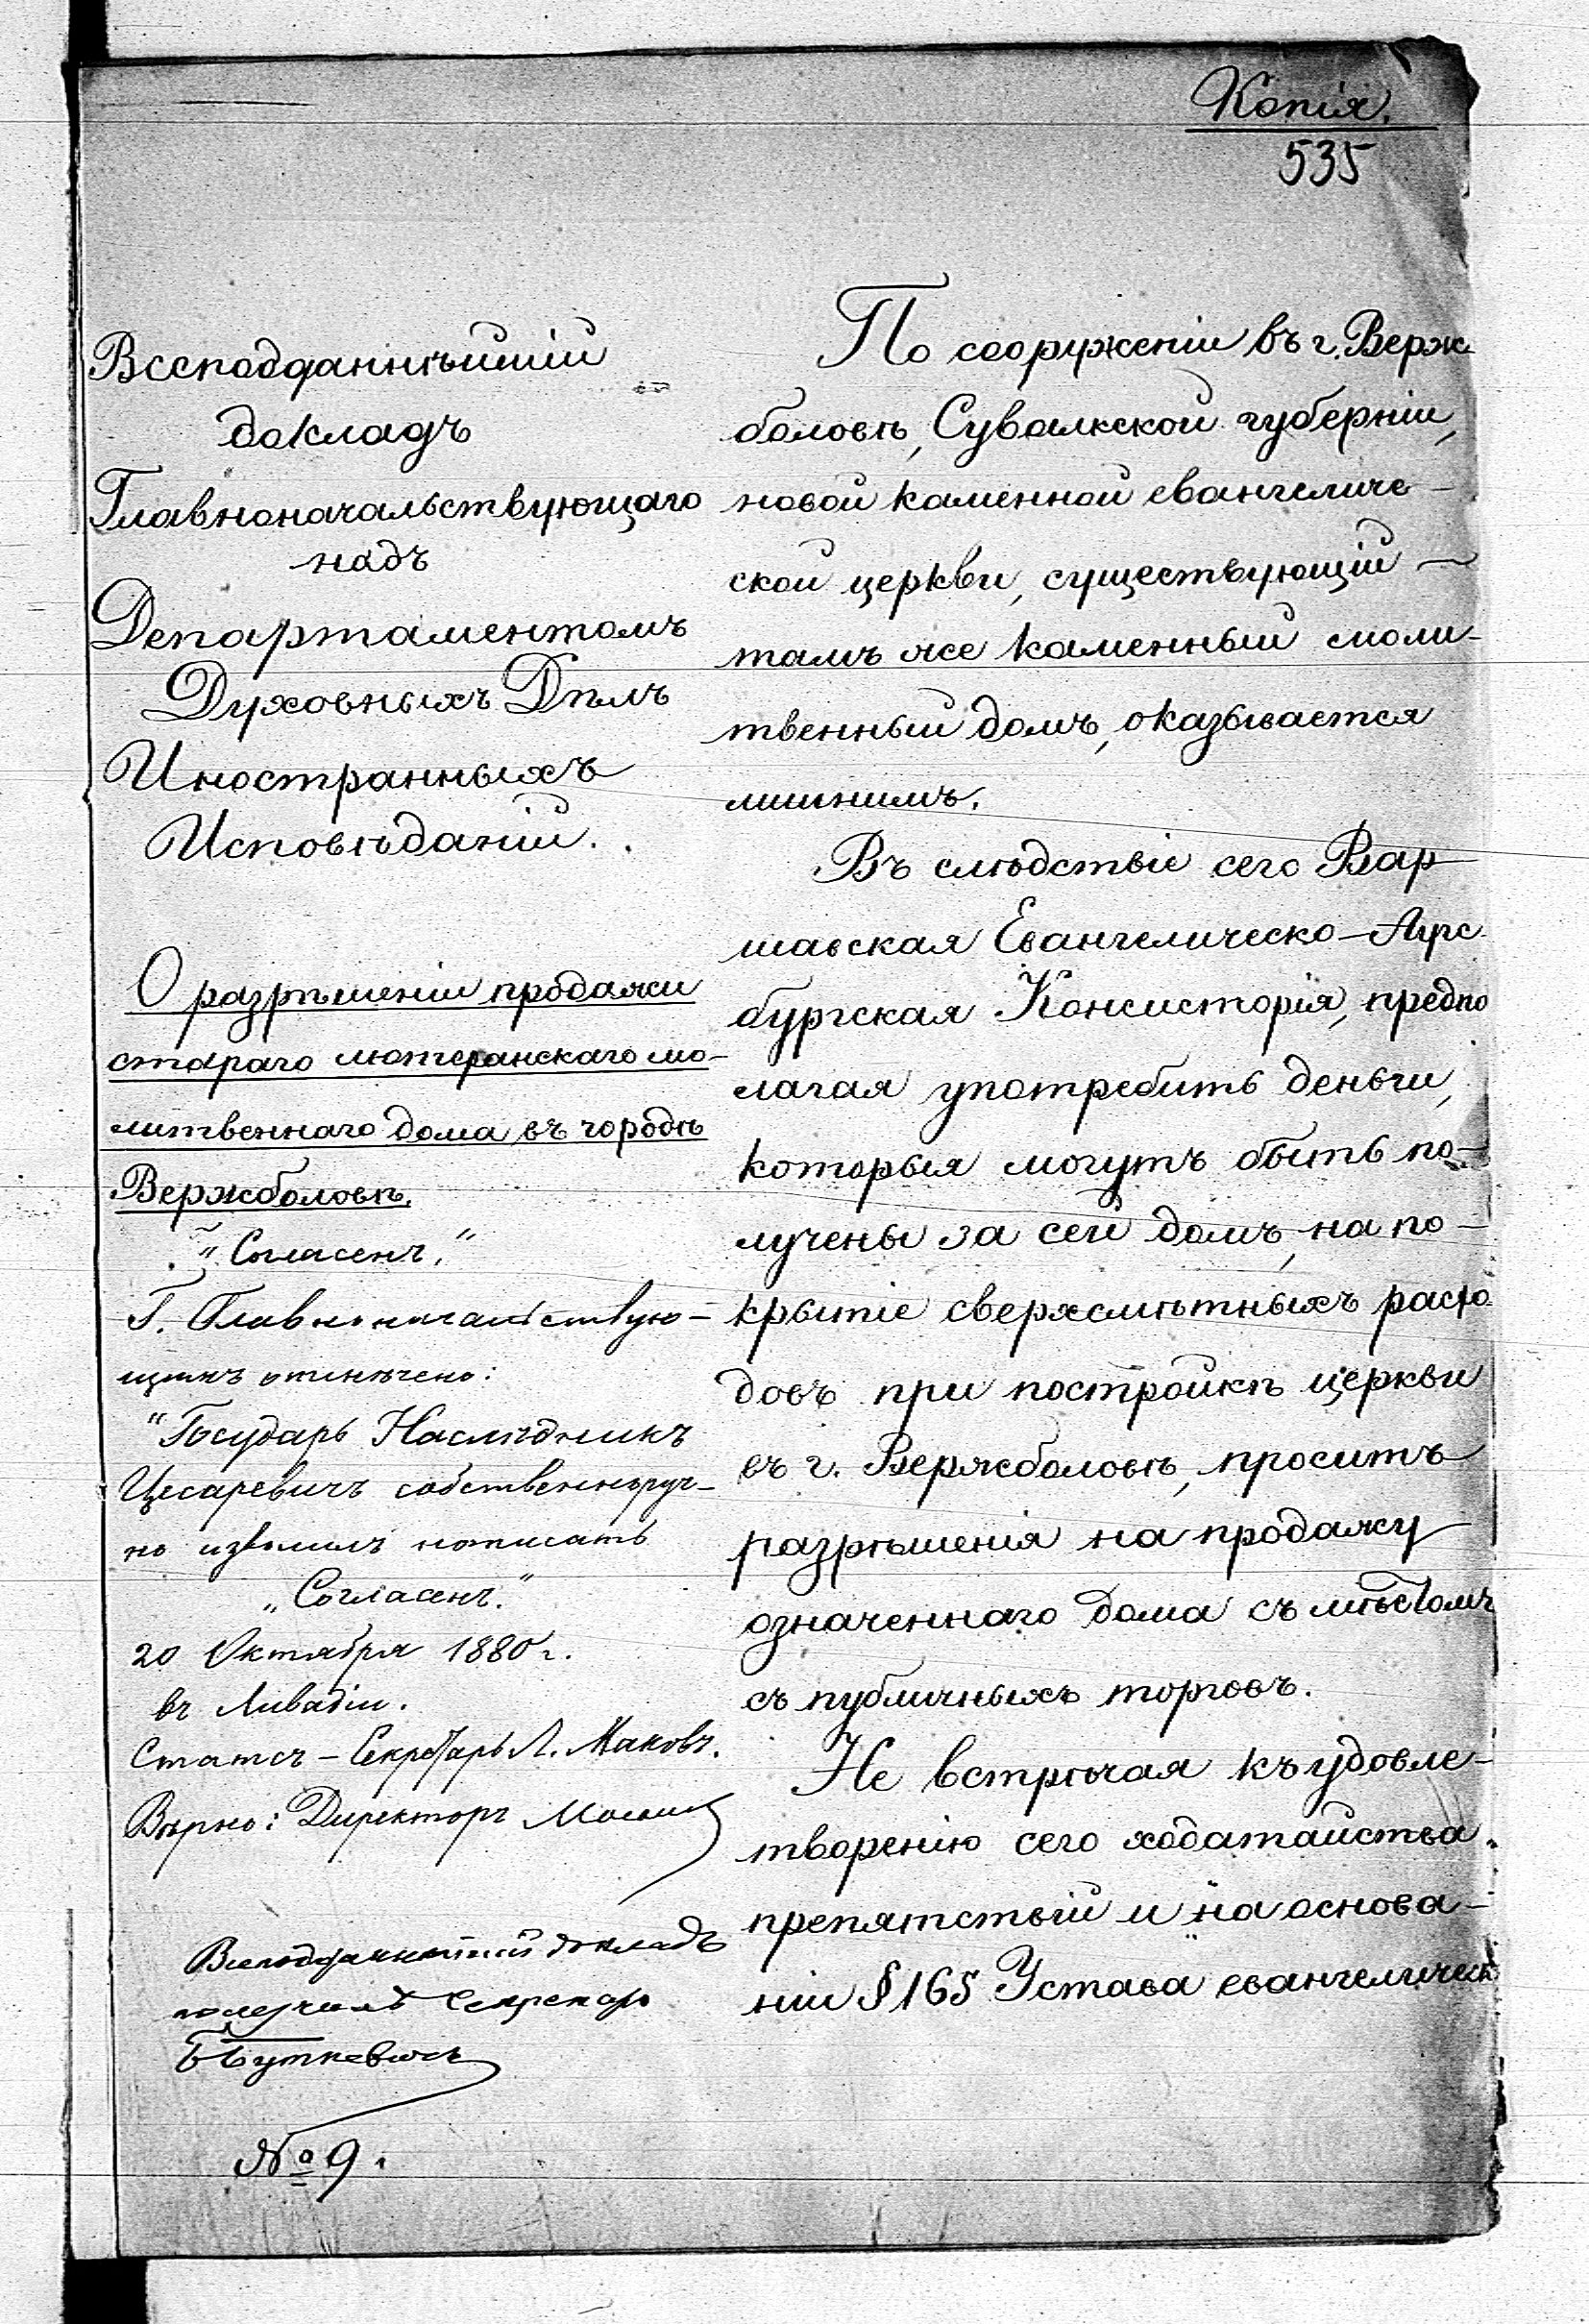 Копія.
535
Всеподданнѣйшій
докладъ
Главноначальствующаго
надъ
Департаментомъ
Духовныхъ Дѣлъ
Иностранныхъ
Исповѣданій.
О разрѣшеніи продажи
стараго лютеранскаго мо-
литвеннаго дома въ городѣ
Вержболовѣ.
"Согласенъ."
Г. Главноначальствую-
щимъ отмѣчено:
"Государь Наслѣдникъ
Цесаревичъ собственноруч-
но изволилъ написать
"Согласенъ."
20 Октября 1880 г.
въ Ливадіи.
Статсъ-Секретарь Л. Маковъ.
Вѣрно: Директоръ
Всеподданнѣйшій докладъ
получилъ Секретарь
Буткевичъ
№ 9.
По сооруженіи въ г. Верж
боловѣ, Сувалкской губерніи,
новой каменной евангеличе-
ской церкви, существующій
тамъ же каменный моли-
твенный домъ, оказывается
лишнимъ.
Въ слѣдствіе сего Вар-
шавская Евангелическо-Аугс
бургская Консисторія, предпо
лагая употребить деньги,
которыя могутъ быть по-
лучены за сей домъ, на по-
крытіе сверхсмѣтныхъ расхо
довъ при постройкѣ церкви
въ г. Вержболовѣ, проситъ
разрѣшенія на продажу
означеннаго дома съ мѣстомъ
съ публичныхъ торговъ.
Не встрѣчая къ удовле-
творенію сего ходатайства
препятствій и на основа-
ніи § 165 Устава евангелическ